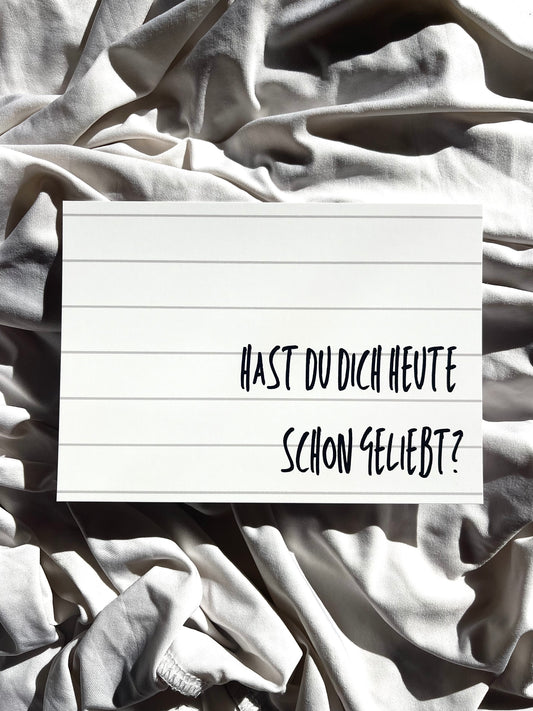 HAST DU DICH HEUTE
SCHON GELIEBT?